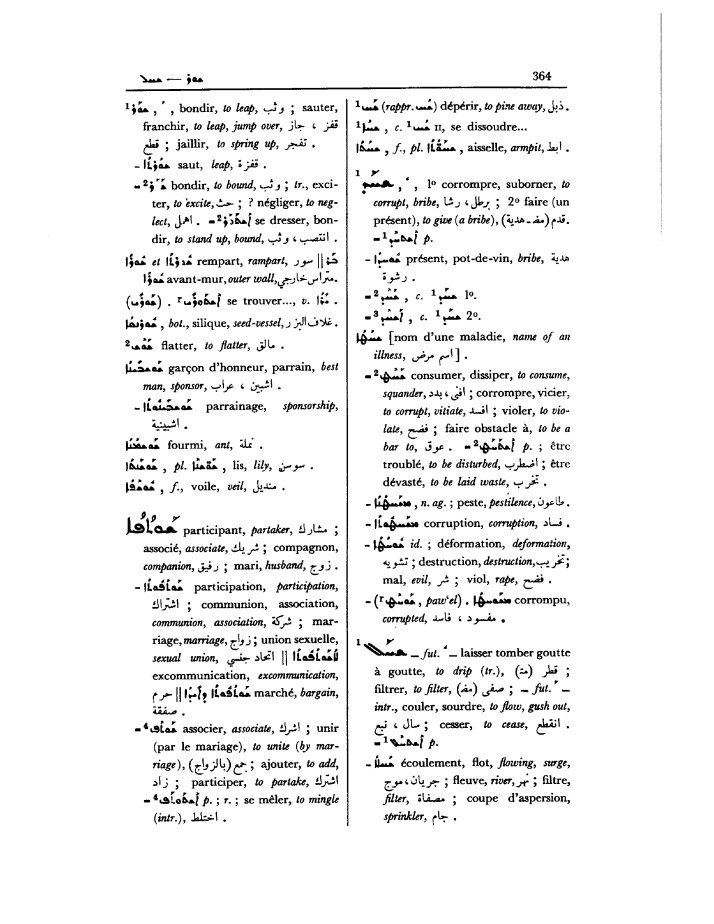 ܫܘܪ — ܫܚܠ
364
ܫܘܪ1 , , bondir, to leap, وثب ; sauter,
franchir, to leap, jump over, قفز ، جاز
قطع ; jaillir, to spring up, تفجر .
– ܫܘܪܬܐ saut, leap, قفزة .
– 2 bondir, to bound, وثب ; tr., exci-
ter, to excite, حث ; ? négliger, to neg-
lect, اهمل . – 2 se dresser, bon-
dir, to stand up, bound, انتصب ، وثب .
ܫܘܪܐ et rempart, rampart, سور ||
avant-mur, outer wall, متراس خارجي.
se trouver..., v.
, bot., silique, seed-vessel, غلاف البزر .
2 flatter, to flatter, مالق .
ܫܘܫܒܝܢܐ garçon d'honneur, parrain, best
man, sponsor, اشبين ، عراب .
– ܫܘܫܒܝܢܘܬܐ parrainage, sponsorship,
اشبينية .
ܫܘܫܡܢܐ fourmi, ant, نملة .
ܫܘܫܢܬܐ , pl. , lis, lily, سوسن .
ܫܘܫܦܐ , f., voile, veil, منديل .
ܫܘܬܦܐ participant, partaker, مشارك ;
associé, associate, شريك ; compagnon,
companion, رفيق ; mari, husband, زوج .
– ܫܘܬܦܘܬܐ participation, participation,
اشتراك ; communion, association,
communion, association, شركة ; mar-
riage, marriage, زواج ; union sexuelle,
sexual union, اتحاد جنسي ||
excommunication, excommunication,
حرم || marché, bargain,
صفقة .
– 4 associer, associate, اشرك ; unir
(par le mariage), to unite (by mar-
riage), جمع (بالزواج) ; ajouter, to add,
زاد ; participer, to partake, اشترك
– 4 p. ; r. ; se mêler, to mingle
(intr.), اختلط .
1 (rappr. ) dépérir, to pine away, ذبل .
1 , c. 1 II, se dissoudre...
, f., pl. , aisselle, armpit, ابط .
1 , , 1º corrompre, suborner, to
corrupt, bribe, برطل ، رشا ; 2º faire (un
présent), to give (a bribe), قدم (مف ـ هدية) .
– 1 p.
– ܫܘܚܕܐ présent, pot-de-vin, bribe, هدية
رشوة .
– 2 , c. 1 1º.
– 3 , c. 1 2º.
[nom d'une maladie, name of an
illness, اسم مرض] .
– 2 consumer, dissiper, to consume,
squander, افنى ، بدد ; corrompre, vicier,
to corrupt, vitiate, افسد ; violer, to vio-
late, فضح ; faire obstacle à, to be a
bar to, عوق . – 2 p. ; être
troublé, to be disturbed, اضطرب ; être
dévasté, to be laid waste, تخرب .
– , n. ag. ; peste, pestilence, طاعون .
– corruption, corruption, فساد .
– id. ; déformation, deformation,
تشويه ; destruction, destruction, تخريب ;
mal, evil, شر ; viol, rape, فضح .
– ( , paw'el) . corrompu,
corrupted, مفسود ، فاسد .
1 – fut. – laisser tomber goutte
à goutte, to drip (tr.), قطر (متـ) ;
filtrer, to filter, صفى (مف) ; – fut. –
intr., couler, sourdre, to flow, gush out,
سال ، نبع ; cesser, to cease, انقطع .
– 1 p.
– écoulement, flot, flowing, surge,
جريان ، موج ; fleuve, river, نهر ; filtre,
filter, مصفاة ; coupe d'aspersion,
sprinkler, جام .